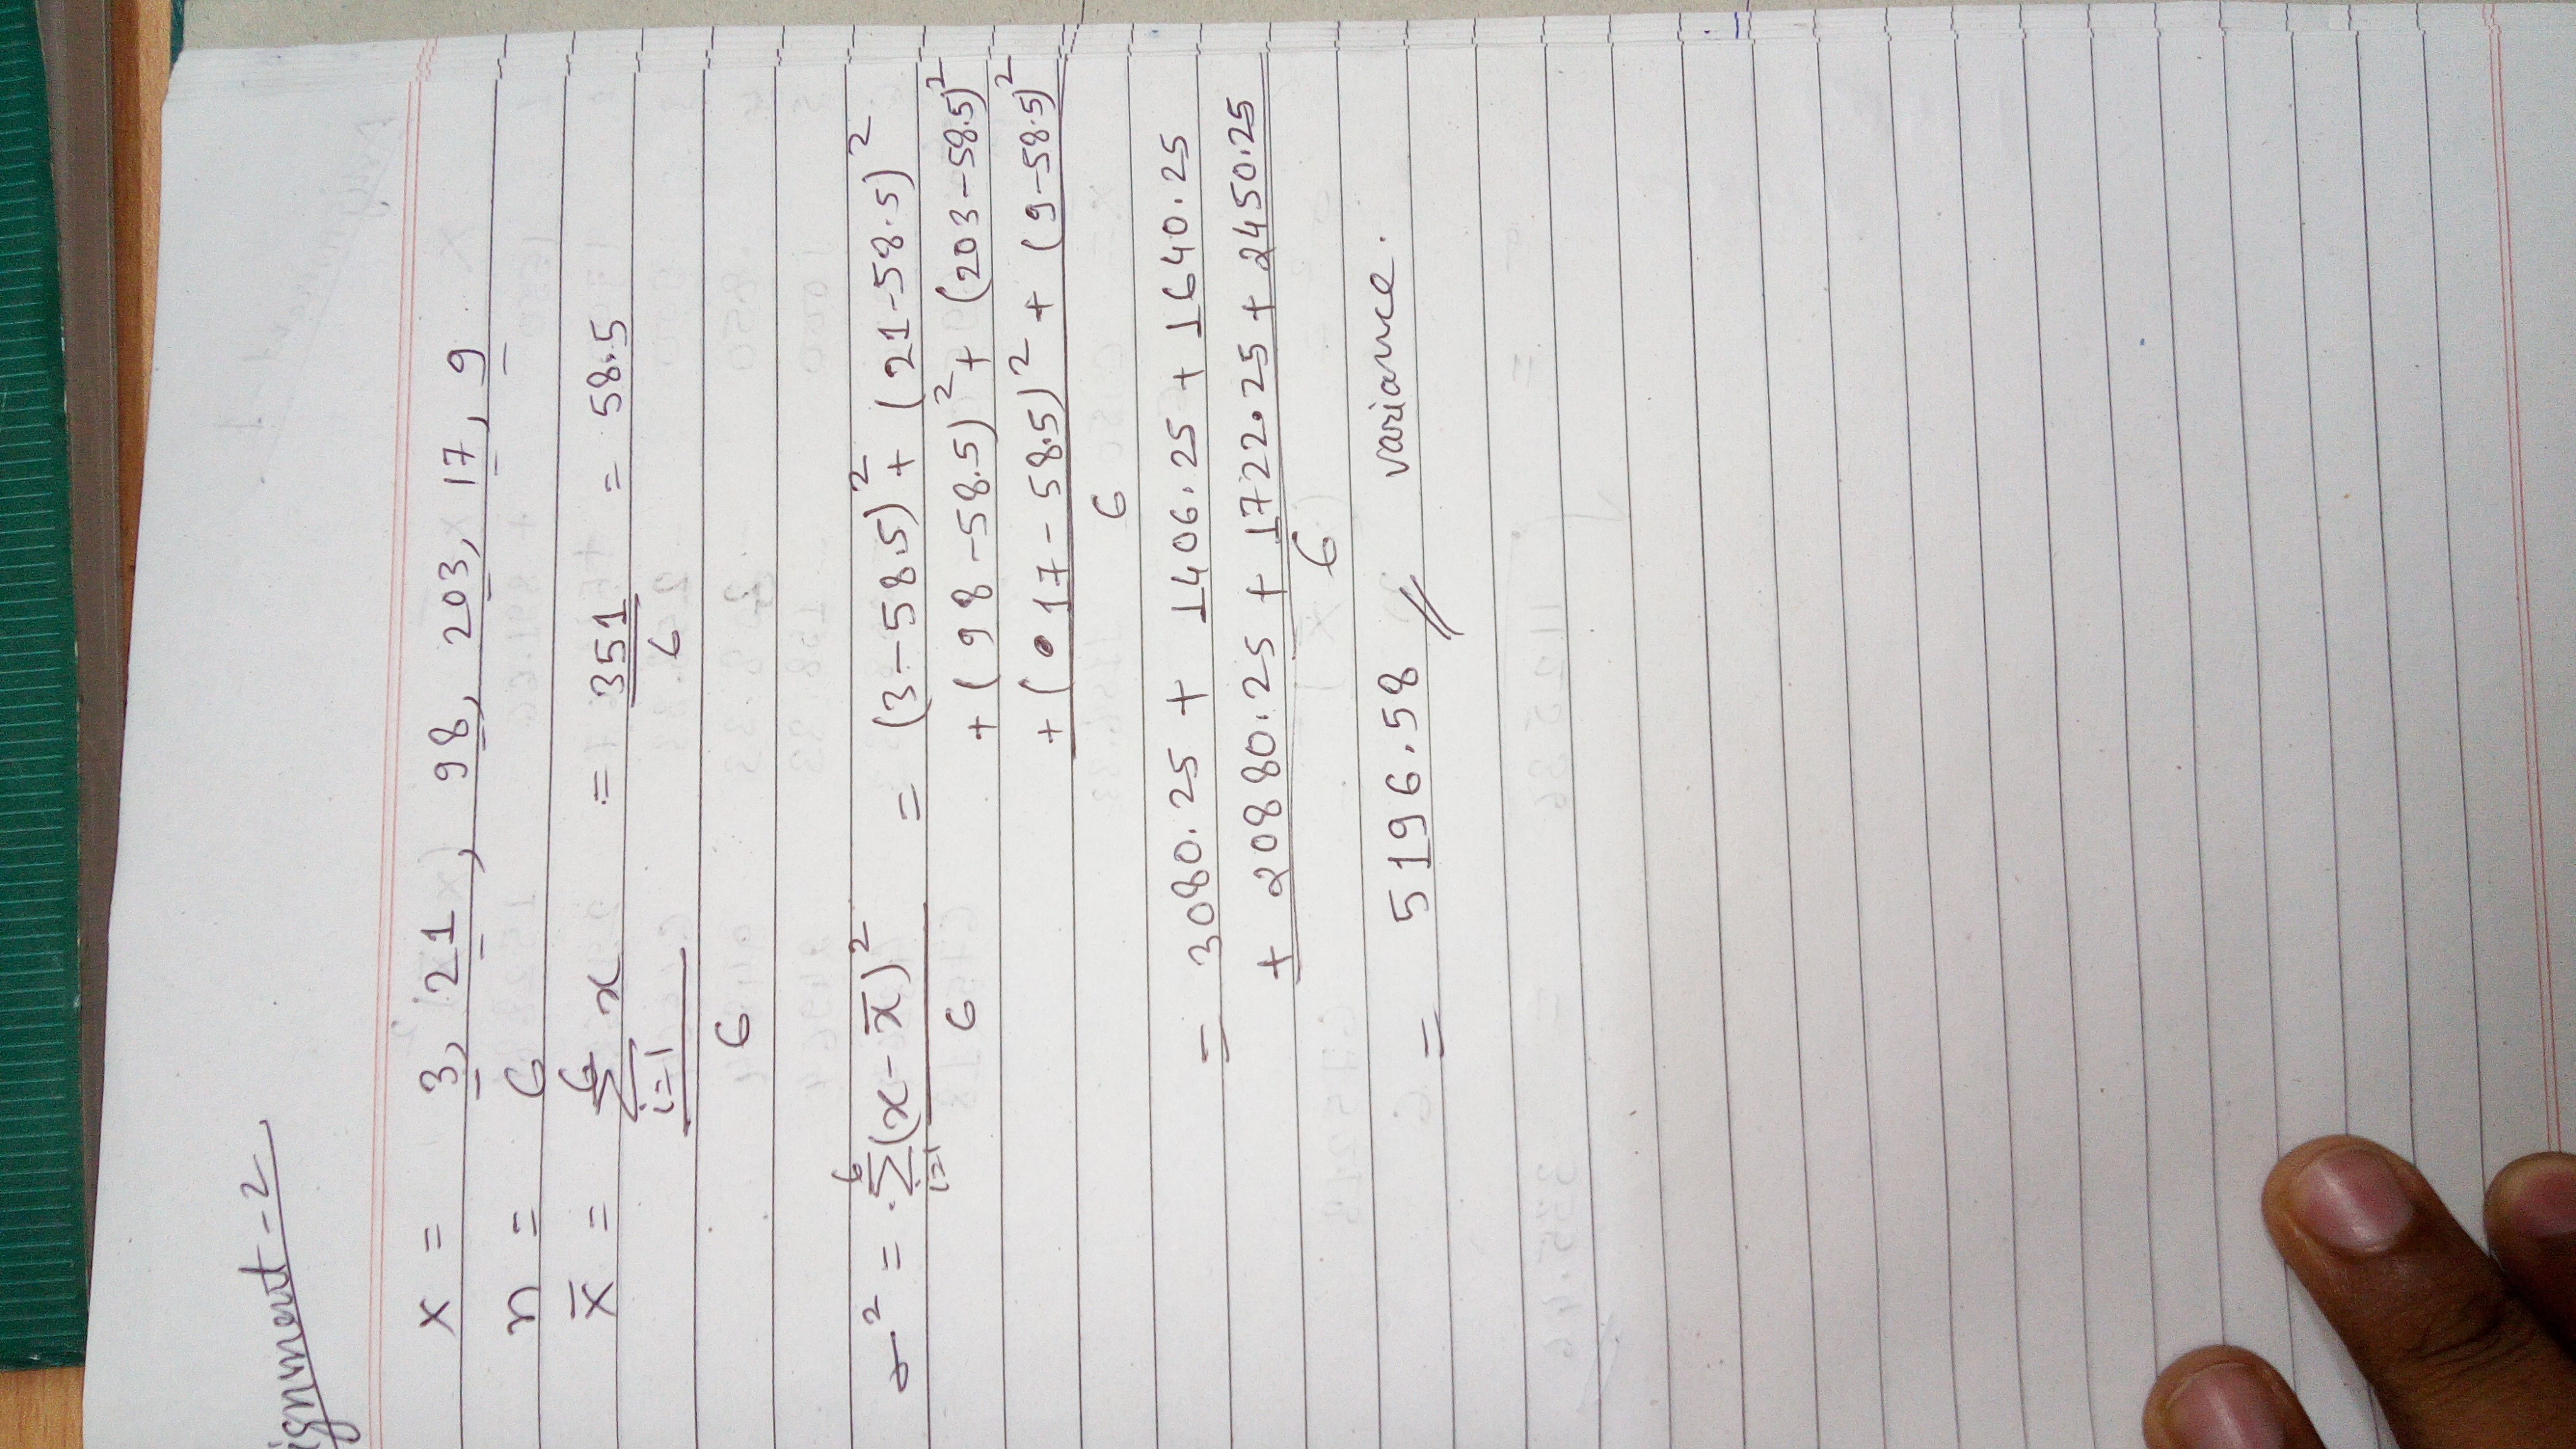 ignment-2
x = 3, 21, 98, 203, 17, 9
n = 6
x̄ = 6 Σ i=1 x / 6 = 351 / 6 = 58.5
σ² = 6 Σ i=1 (x - x̄)² / 6 = (3-58.5)² + (21-58.5)²
+ (98-58.5)² + (203-58.5)²
+ (17-58.5)² + (9-58.5)²
6
= 3080.25 + 1406.25 + 1640.25
+ 20880.25 + 1722.25 + 2450.25
6
= 5196.58 // variance.